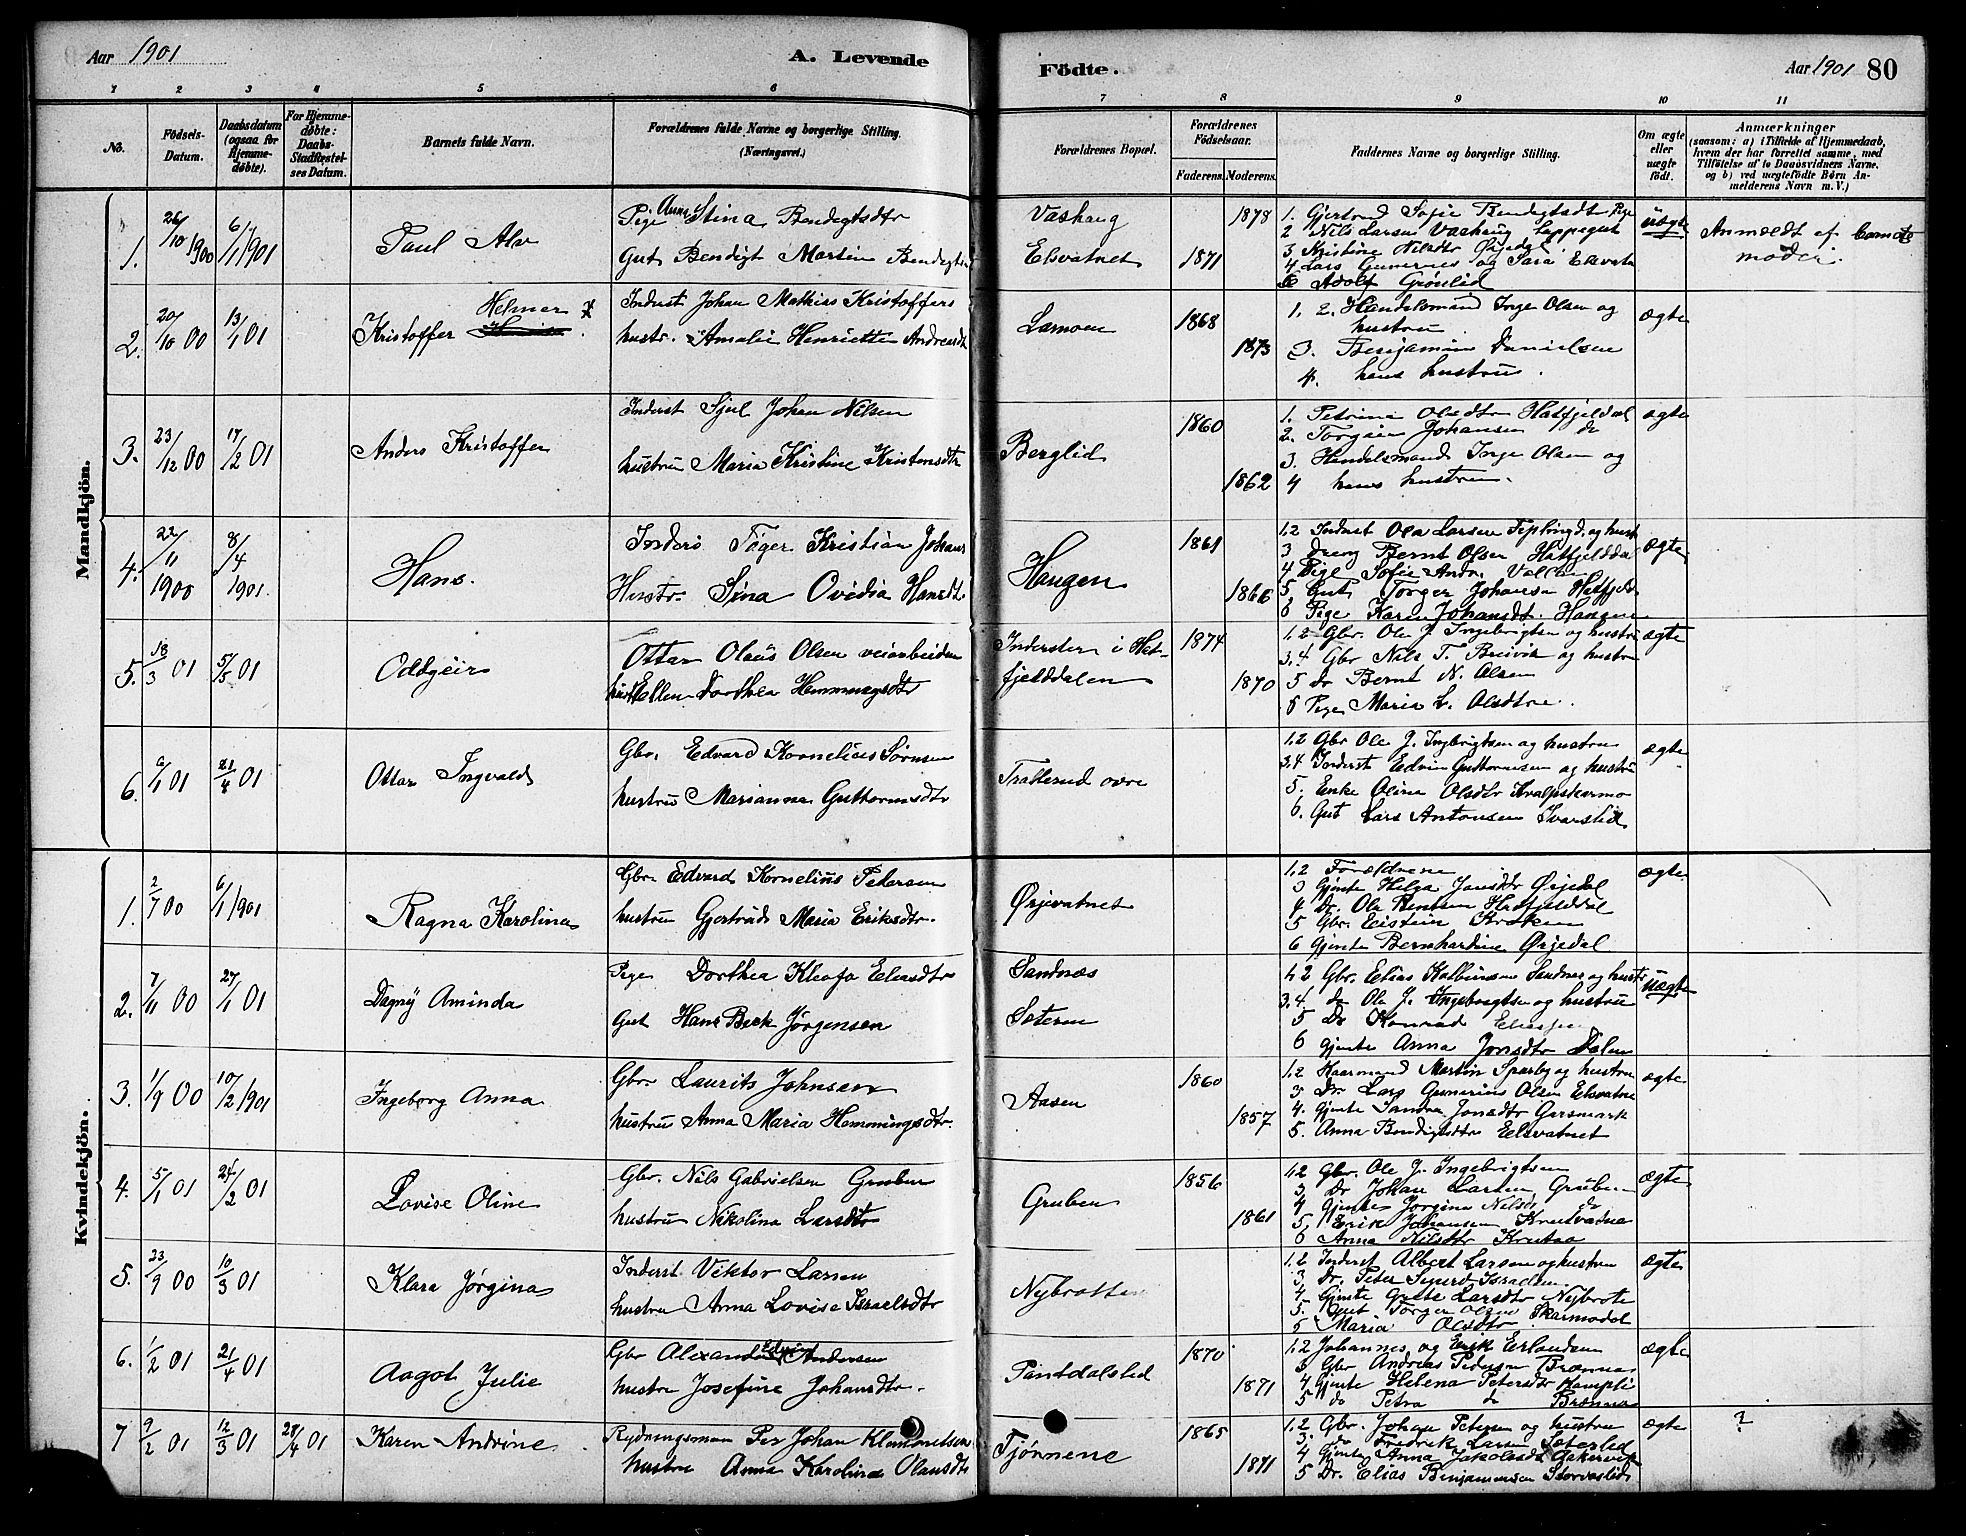 Aar 1901
A. Levende
Födte.
Aar 1901 80
1 2 3 4 5 6 7 8 9 10 11
No.
Födsels-Datum.
Daabsdatum (ogsaa for Hjemmedøbte).
For Hjemmedøbte: Daabs-Stadfæstelses Datum.
Barnets fulde Navn.
Forældrenes fulde Navne og borgerlige Stilling. (Næringsvei.)
Forældrenes Bopæl.
Forældrenes Födselsaar.
Faderens. Moderens.
Faddernes Navne og borgerlige Stilling.
Om ægte eller uægte født.
Anmærkninger
(saasom: a) i Tilfælde af Hjemmedaab, hvem der har forrettet samme, med Tilføielse af to Daabsvidners Navne. og b) ved uægtefødte Børn Anmelderens Navn m. V.)
Mandkjön.
1. 26/10 1900 6/1 1901 Paul Alv
Pige Anne Stina Bendigtsdtr
Gut Bendigt Martin
Vashaug
Elsvatnet
1878
1871
1. Gjertrud Sofie Bendigtsdtr Pige
2 Nils Larsen Vashaug
3. Kristine Nilsdtr Ørjedal
4. Lars Gunernes og Sara Elsvatn
6 Adolf Grönlid
uægte
Anmeldt af
moder.
2. 20/10 00 13/1 01 Kristoffer Helmer
Inderst Johan Mathias Kristoffers
hustr. Amalie Henriette Andreasdt
1868
1873
1. 2. Handelsmand Inge Olsen og
hustru
3. Benjamin Danielsen
4. hans hustru.
ægte
3. 23/12 00 17/2 01 Anders Kristoffer
Inderst Sjul Johan Nilsen
hustru Maria Kristine Kristensdtr
Berglid
1860
1862
1. Petrina Olsdtr Hatfjeldal
2. Torger Johansen do
3. Handelsmand Inge Olsen og
4 hans hustru.
ægte
4. 22/11 1900 8/4 1901. Hans.
Töger Kristian Johans
Hustr. Sina Ovidia Hansdt
Haugen
1861
1866
1.2 Inderst Ola Larsen og hust
3 dreng Bernt Olsen Hatfjelddal
4 Pige Sofie Andr.
5 Gut Torger Johansen Hatfjeld
6 Pige Karen Johansdt. Haugen
ægte
5. 18/3 01 5/5 01 Oddgeir
Ottar Olaus Olsen veiarbeider
hust Ellen Dorthea Hemmingsdtr
Inderster i Hat-
fjelddalen
1874
1870
1.2 Gbr. Ole J. Ingebrigtsen og hustru
3.4 Gbr Nils T. Breivik og hustru
5 dr Bernt N. Olsen
6 Pige Maria L. Olsdtr.
ægte
6. 6/1 01 21/4 01 Ottar Ingvald
Gbr. Edvard Kornelius Sørnsen
hustru Marianna Guttormsdtr
Trallerud övre
1.2 Gbr Ole J. Ingbrigtsen og hustru
3.4 Inderst Edvin Guttormsen og hustru
5. Enke Oline Olsdtr Kvalpskarmo
6. Gut Lars Antonsen Ivarslid
ægte
Kvindekjön.
1. 2/7 00 6/1 1901 Ragna Karolina
Gbr. Edvard Kornelius Petersen
hustru Gjertrud Maria Eriksdtr.
Ørjevatnet
1.2 Forældrene
3 Gjente Helga Jonsdtr Ørjedal
4 Dr. Ole Bentsen Hatfjelddal
5 Gbr. Eistein Kroken
6 Gjente Bernhardine Ørjedal
ægte
2. 7/11 00 27/1 01 Dagny Aminda
Pige Dorthea Kleofa Eliasdtr
Gut Hans Beck Jørgensen
Sandnæs
Sæteren
1.2 Gbr. Elias Sandnæs og hustr
3.4. do Ole J. Ingebrigtsen og hustru
5 Dr Konrad
6 Gjente Anna Jonsdtr Dalen
uægte
3. 1/9 00 10/2 1901 Ingeborg Anna
Gbr Laurits Johnsen
hustru Anna Maria Hemmingsdtr.
Aasen
1860
1857
1.2 Haarmand Martin Sparby og hustru
3 Dr. Lars Gunerius Olsen Elsvatne
4. Gjente Sandra Jonsdtr Gersmark
5. Anna Bendigtsdtr Elsvatnet
ægte
4. 5/1 01 24/2 01 Lovise Oline
Gbr. Nils Gabrielsen Gruben
hustru Nikolina Larsdtr
Gruben
1856
1861
1.2 Gbr. Ole J. Ingebrigtsen
3 Dr Johan Larsen Gruben
4 Gjente Jorgina Nilsd. do
5. Erik Johansen Krutvatne
6 Anna Nilsdtr Krutaa
ægte
5. 23/9 00 10/3 01 Klara Jørgina
Inderst. Viktor Larsen
hustru Anna Lovise Israelsdtr
Nybrotte
1.2 Inderst Albert Larsen og hustru
3 Dr. Peter Sigurd Israelsen
4 Gjente Larsdtr Nybrote
5. Gut Torger Olsen Skarmodal
5 Maria Olsdtr
ægte
6. 1/2 01 21/4 01 Aagot Julie
Gbr Alexander Edvart Andersen
hustru Josefine Johansdtr.
Pantdalslid
1870
1871
1.2 Johannes og Erik Erlandsen
3 Gbr Andreas Pedersen Brænna
4 Gjente Helena Petersdtr
5 do Petra do Brænna
ægte
7 9/2 01 12/3 01 28/4 01 Karen Andrine
Rydningsman Per Johan Klemmetsen
hustru Anna Karolina Olausdtr
Tjørnene
1865
1871
1.2. Gbr. Johan Petersen og hustru
3. do Fredrik Larsen Sæterlid
4 Gjente Anna Jakobsdt Aakervik
5 Dr. Elias Benjaminsen Storvaslid
ægte
?